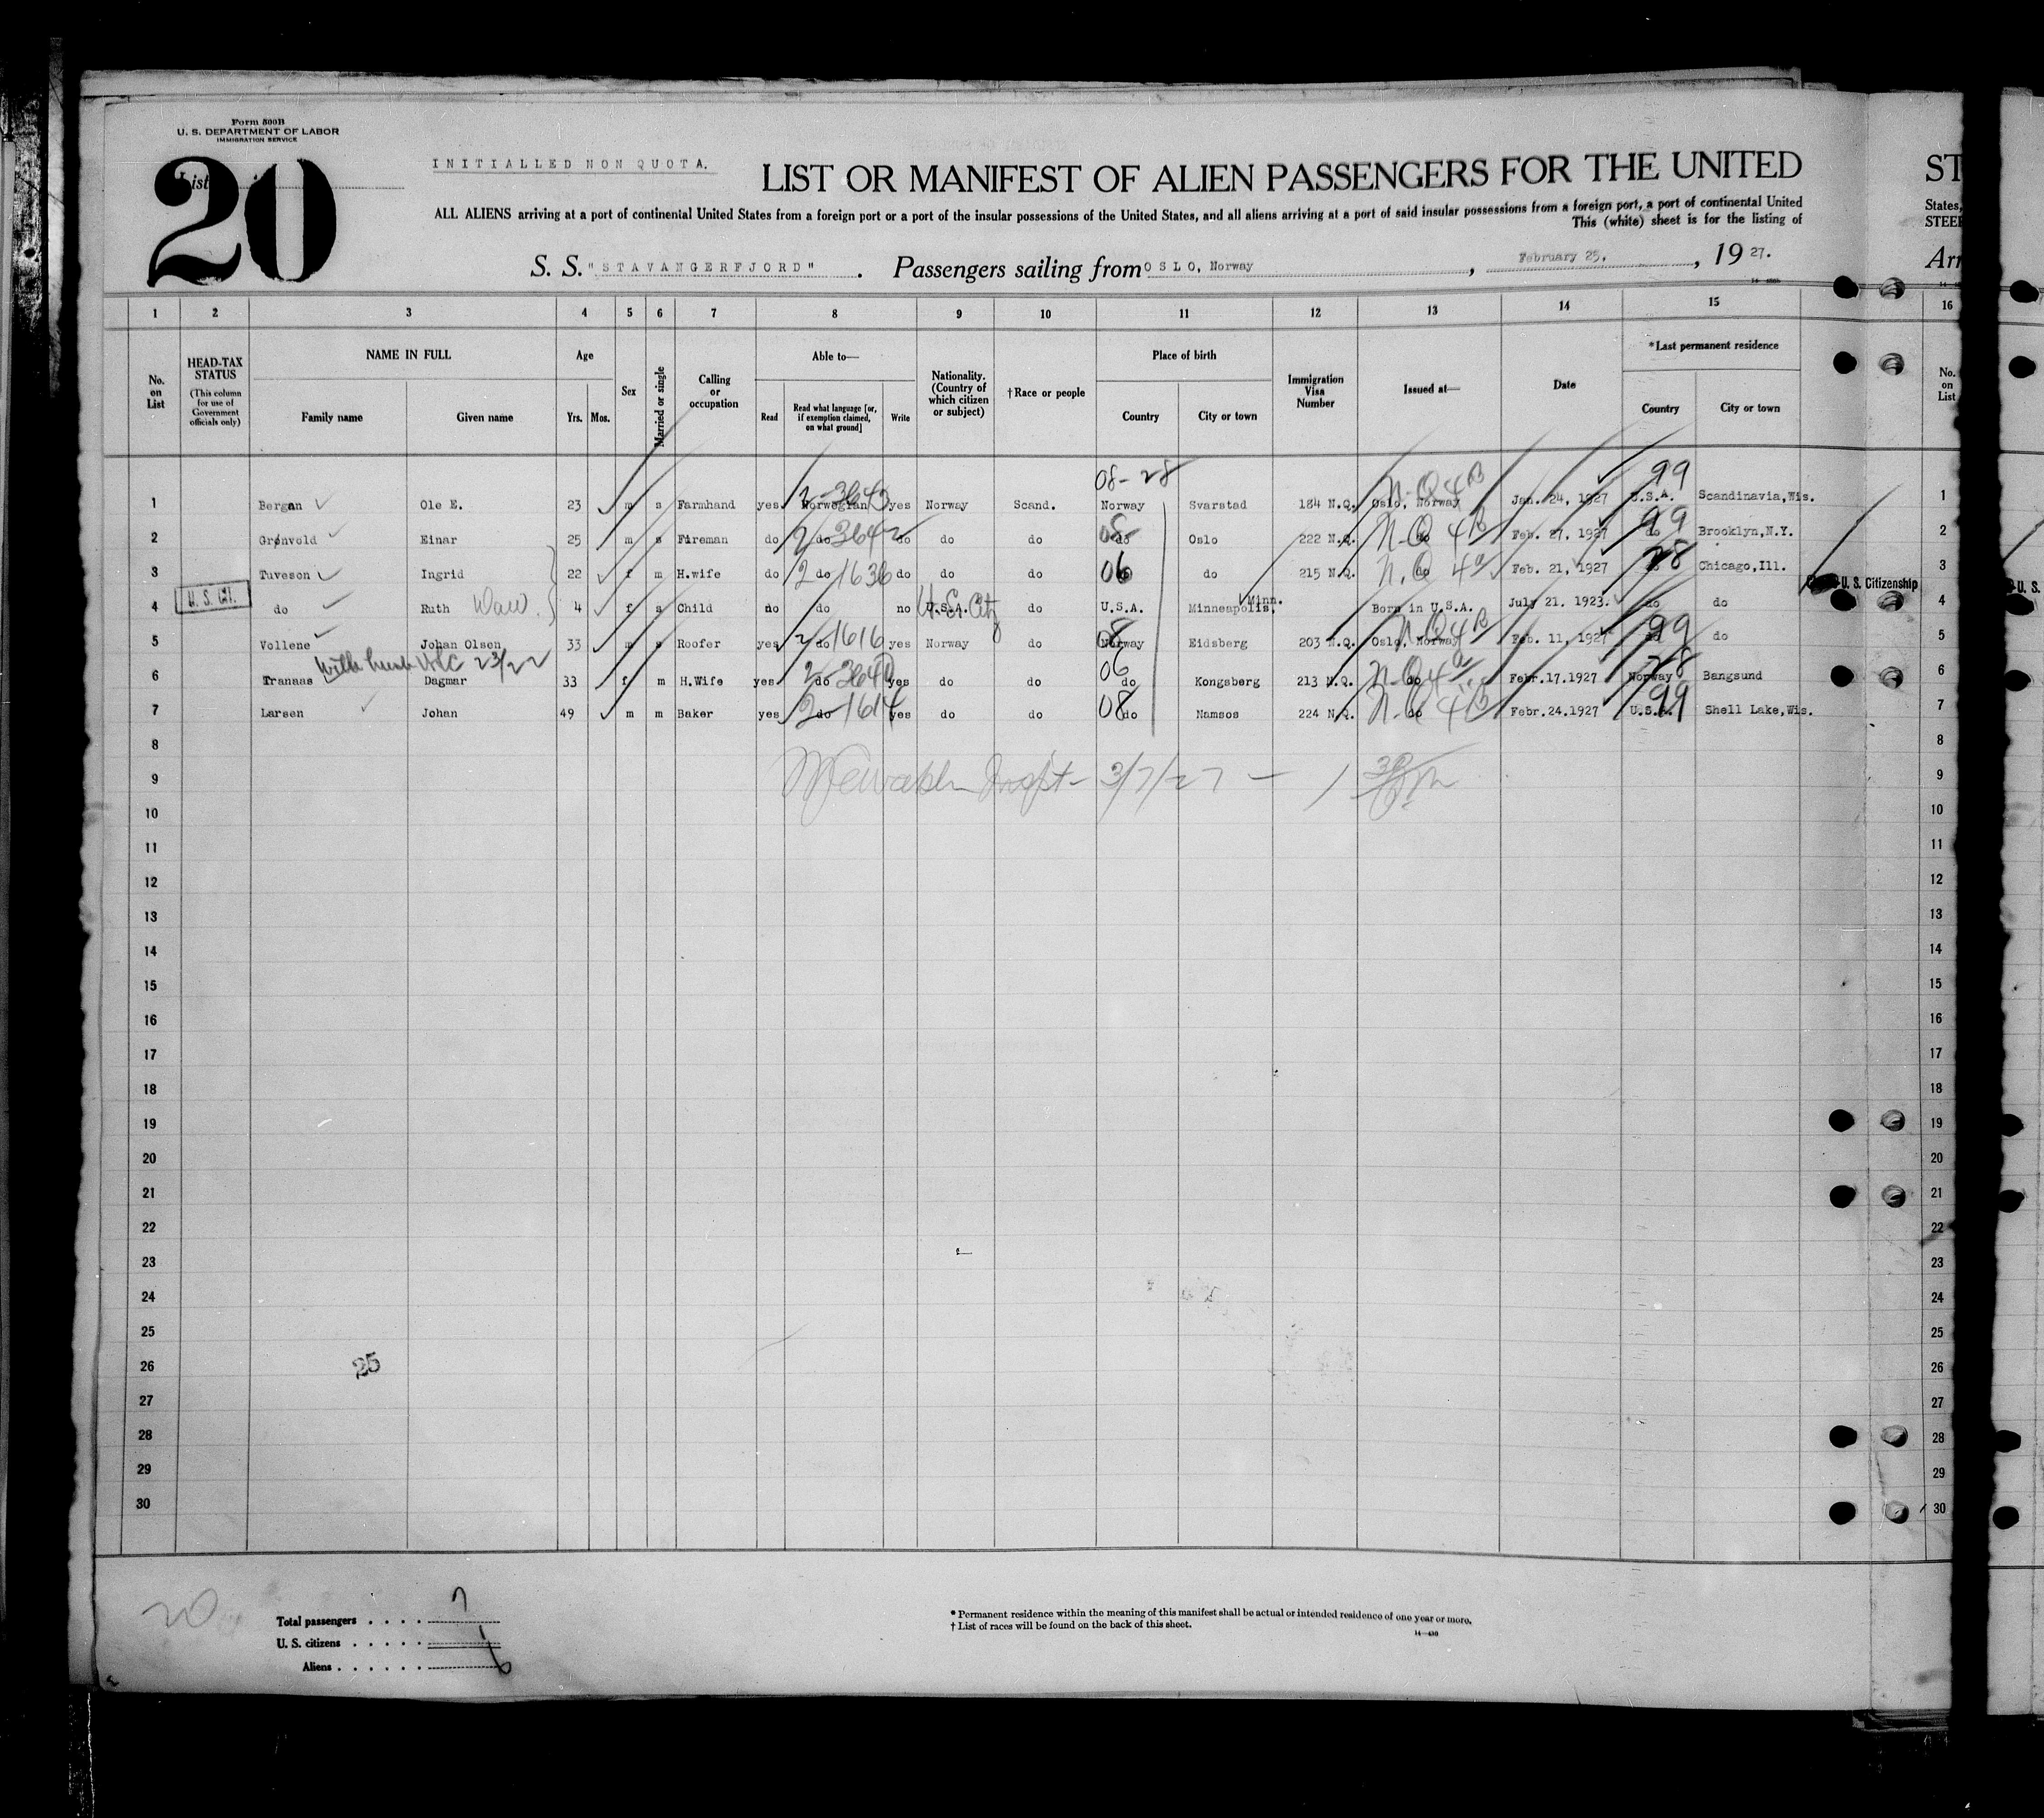 Form 500B
U. S. DEPARTMENT OF LABOR
IMMIGRATION SERVICE
List
20
INITIALLED NON QUOTA.
LIST OR MANIFEST OF ALIEN PASSENGERS FOR THE UNITED ST
ALL ALIENS arriving at a port of continental United States from a foreign port or a port of the insular possessions of the United States, and all aliens arriving at a port of said insular possessions from a foreign port, a port of continental United States,
This (white) sheet is for the listing of
S. S. "STAVANGERFJORD". Passengers sailing from OSLO, Norway, February 25, 1927.
1 2 3 4 5 6 7 8 9 10 11 12 13 14 15 16
No. on List
HEAD-TAX STATUS
(This column for use of Government officials only)
NAME IN FULL
Family name Given name
Age
Yrs. Mos.
Sex
Married or single
Calling or occupation
Able to—
Read
Read what language [or, if exemption claimed, on what ground]
Write
Nationality. (Country of which citizen or subject)
†Race or people
Place of birth
Country City or town
Immigration Visa Number
Issued at—
Date
*Last permanent residence
Country City or town
No. on List
08-28 99
1 Bergan Ole E. 23 m s Farmhand yes Norwegian 2-3643 yes Norway Scand. Norway Svarstad 184 N.Q. Oslo, Norway N-Q 4B Jan. 24, 1927 U.S.A. Scandinavia, Wis. 1
2 Grønvold Einar 25 m s Fireman do 2 do 3642 do do do do 08 Oslo 222 N.Q. do N-Q 4B Feb. 27, 1927 do 99 Brooklyn, N.Y. 2
3 Tuveson Ingrid 22 f m H.wife do 2 do 1636 do do do 06 do 215 N.Q. N.Q 4a Feb. 21, 1927 28 Chicago, Ill. 3
U. S. Citizenship
U. S. Cit.
4 do Ruth 4 f s Child no do no U.S.A. do U.S.A. Minneapolis, Minn. Born in U.S.A. July 21. 1923. do do 4
5 Vollene Johan Olsen 33 m s Roofer yes 2 do 1616 yes Norway do Norway 08 Eidsberg 203 N.Q. Oslo, Norway N-Q 4B Feb. 11, 1927 99 do 5
23/22
6 Tranaas Dagmar 33 f m H.Wife yes do 2-3640 yes do do do 06 Kongsberg 213 N.Q. do N-Q 4a Febr.17.1927 Norway 28 Bangsund 6
7 Larsen Johan 49 m m Baker yes 2 do 1614 yes do do do 08 Namsos 224 N.Q. do N-Q 4B Febr.24.1927 U.S.A. 99 Shell Lake, Wis. 7
8 8
9 Inspt- 3/7/27 9
10 10
11 11
12 12
13 13
14 14
15 15
16 16
17 17
18 18
19 19
20 20
21 21
22 22
23 23
24 24
25 25
26 25 26
27 27
28 28
29 29
30 30
20
Total passengers . . . . 7
U. S. citizens . . . . . 1
Aliens . . . . . . 6
* Permanent residence within the meaning of this manifest shall be actual or intended residence of one year or more.
† List of races will be found on the back of this sheet.